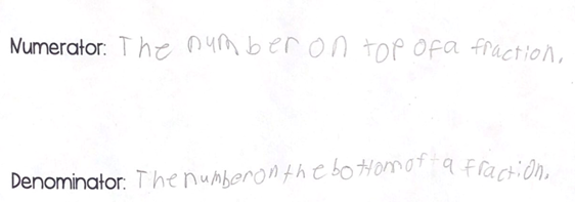 Numerator: The number on top of a fraction.
Denominator: The number on the bottom of a fraction.